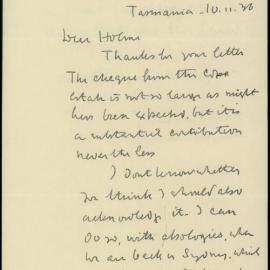 Tasmania - 10.11.36
Dear Holme
Thanks for your letter
The cheque from the
Estate is not so large as might
have been expected, but it is
a substantial contribution
never the less
I don't know whether
you think I should also
acknowledge it. I can
do so, with apologies, when
we are back in Sydney, which